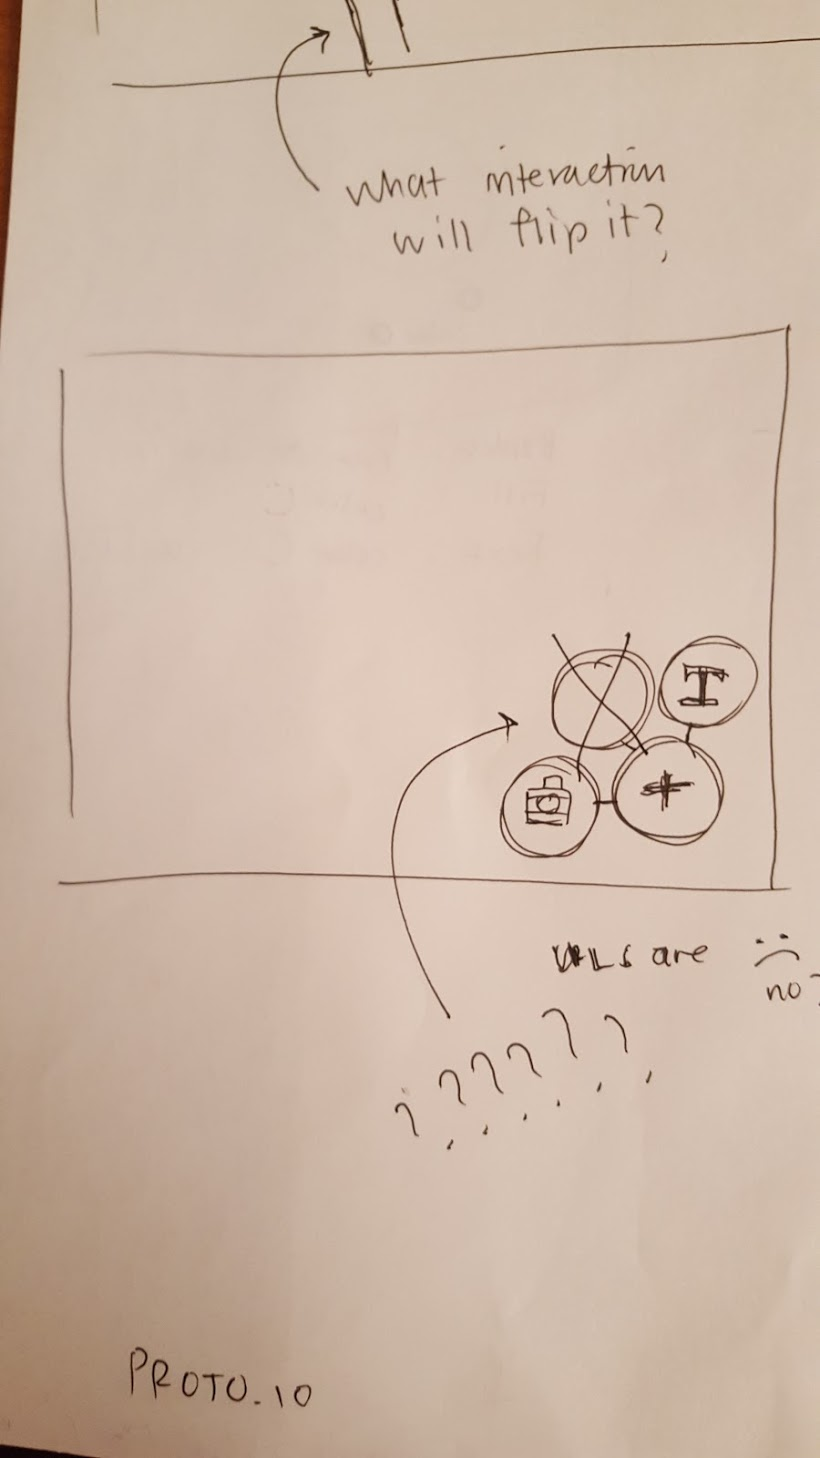 what interaction
will flip it?
T
+
URLs are :(
no?
? ? ? ? ? ?
PROTO.IO